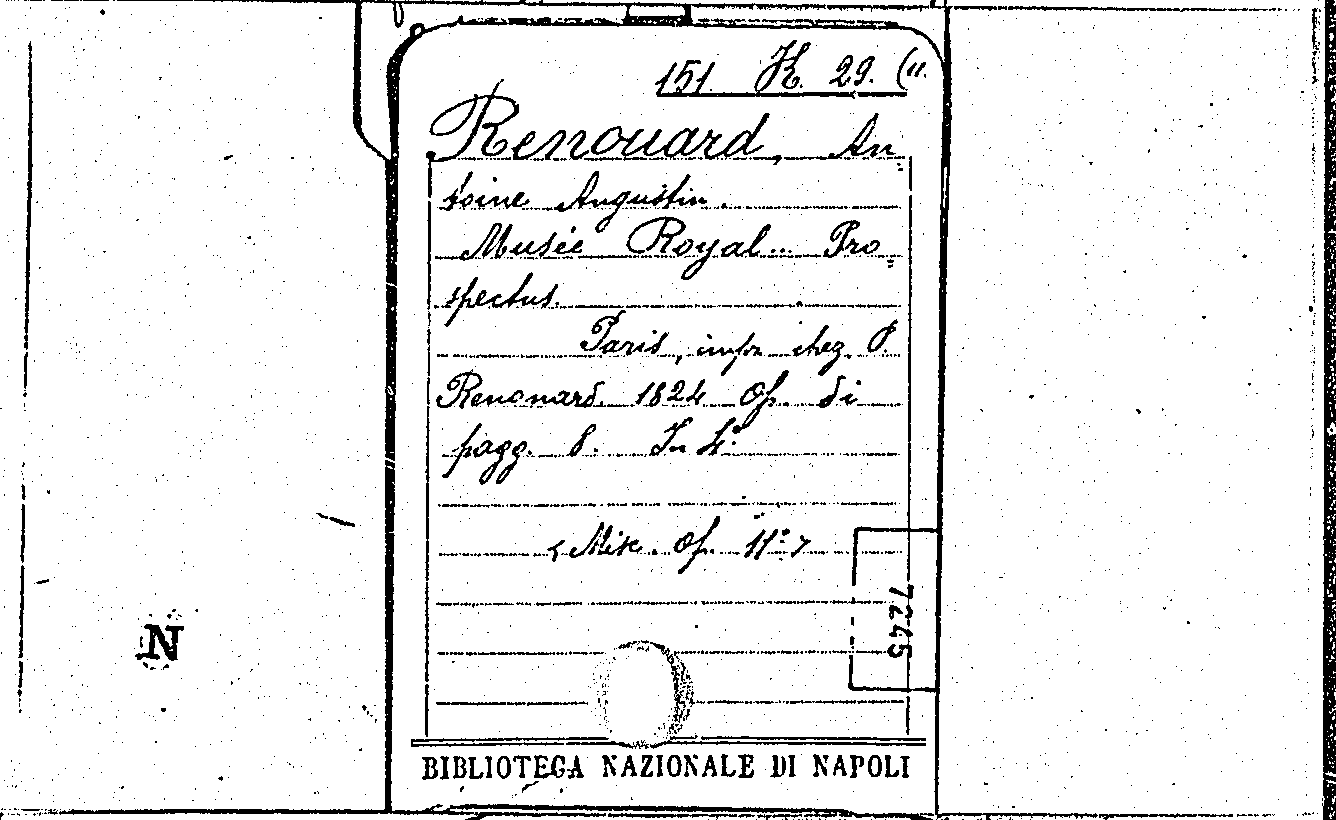 151. K. 29. (11.
Renouard, An=
toine Augustin.
Musée Royal... Pro=
spectus.
Paris, impr. chez P.
Renouard. 1824 Op. di
pagg. 8. In 4.°
<Misc. Op. 11°>
7245
N
BIBLIOTECA NAZIONALE DI NAPOLI